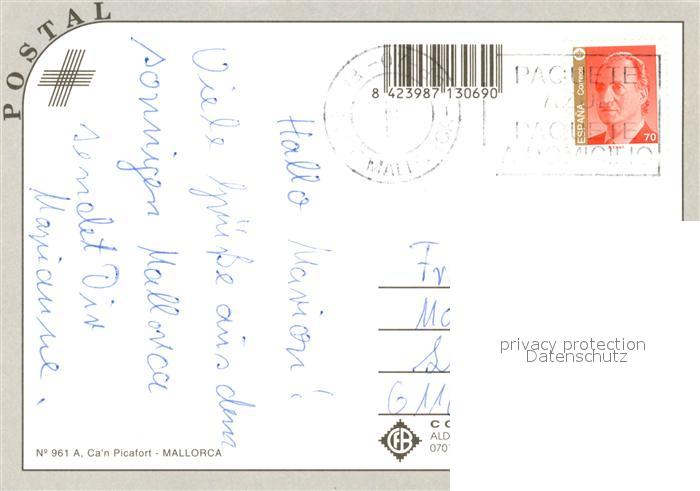 POSTAL
8 423987 130690
PAQUETE
AZUL
PAQUETE
A DOMICILIO
ESPAÑA Correos
70
MALL
Hallo Marion!
Viele Grüße aus dem
sonnigen Mallorca
sendet Dir
Marianne.
Fr
Mo
611
privacy protection
Datenschutz
CO
ALD
070
Nº 961 A, Ca'n Picafort - MALLORCA